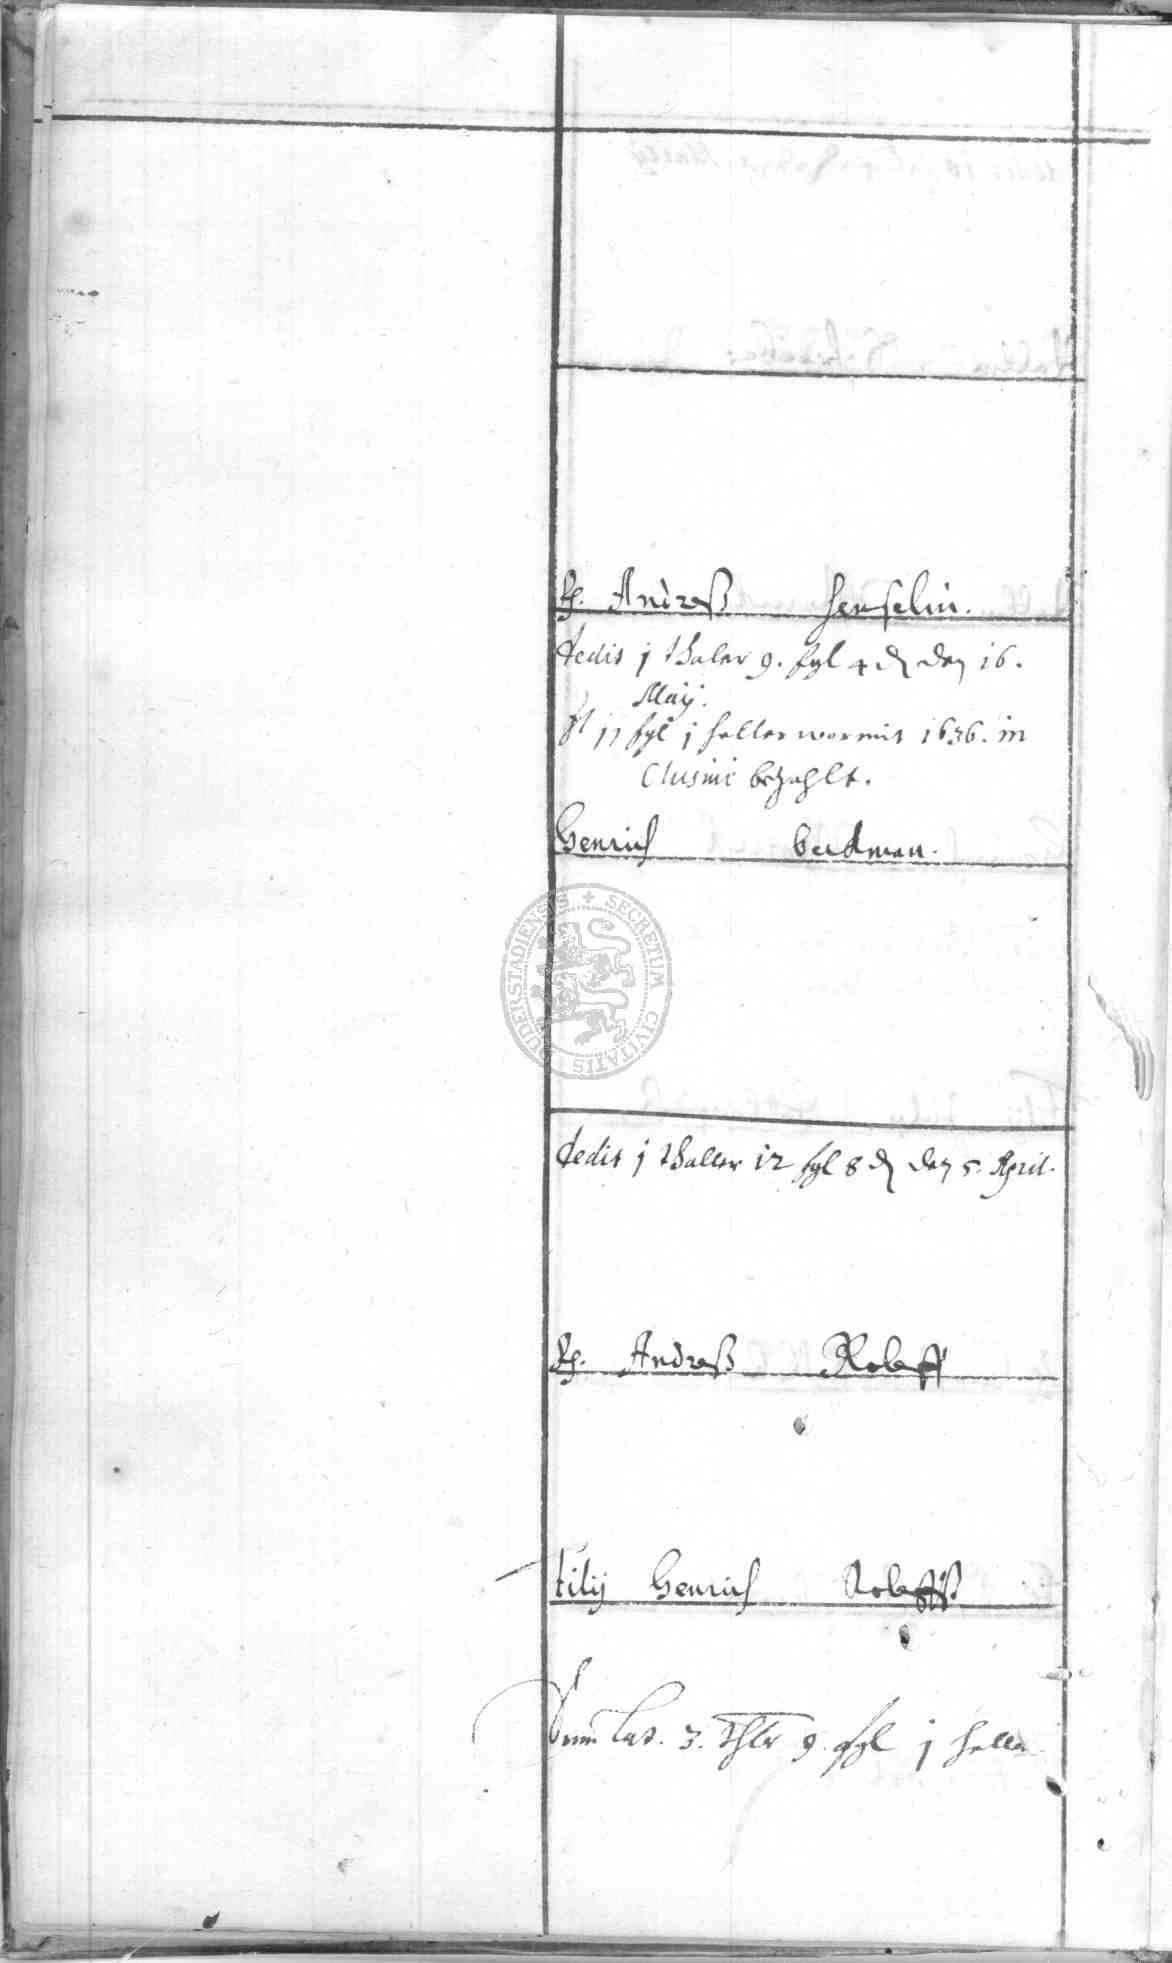 R. Andreß Henselin.
dedit j thaler 9. sgl 4 d den 16.
Maij.
It 11 sgl j heller wormit 1636. in
Clusive bezahlt.
Henrich beckman.
SECRETUM CIVITATIS DUDERSTADIENSIS
dedit j thaller 12 sgl 8 d den 5. April.
R. Andreß Roleff
filij Henrich Roleffß
Sum Lat. 3. thlr 9. sgl j heller